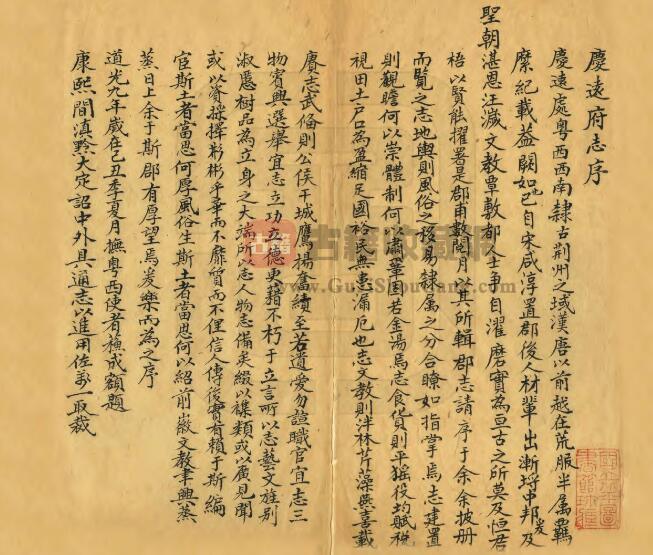 慶遠府志序
慶遠處粵西西南隸古荆州之域漢唐以前越在荒服半属羈
縻紀載蓋闕如也自宋咸淳置郡後人材輩出漸埒中邦爰及
聖朝湛恩汪濊文教覃敷都人士爭自濯磨實為亘古之所莫及恒君
梧以賢能擢署是郡甫數閱月其所輯郡志請序于余余披册
而覽之志地輿則風俗之移易隸属之分合瞭如指掌焉志建置
則觀瞻何以崇體制何以肅鞏固若金湯焉志食貨則平猺役均賦稅
視田土戶口為盈縮足國裕民無患漏卮也志文教則泮林芹藻燕喜載
賡志武俻則公侯干城鷹揚奮績至若遺愛勿諠職官宜志三
物賓興選舉宜志立功立德更藉不朽于立言所以志藝文旌别
淑慝樹品為立身之大端所以志人物志備矣綴以襍類或以廣見聞
或以資採擇彬彬乎華而不靡質而不俚信今傳後實有賴于斯編
宦斯土者當思何厚風俗生斯土者當思何以紹前徽文教聿興蒸
蒸日上余于斯郡有厚望焉爰樂而為之序
道光九年歲在己丑季夏月撫粵西使者穐成額題
康熙間滇黔大定詔中外具通志以進用佐乙一取裁
古籍收藏網
www.GujiShuFang.com